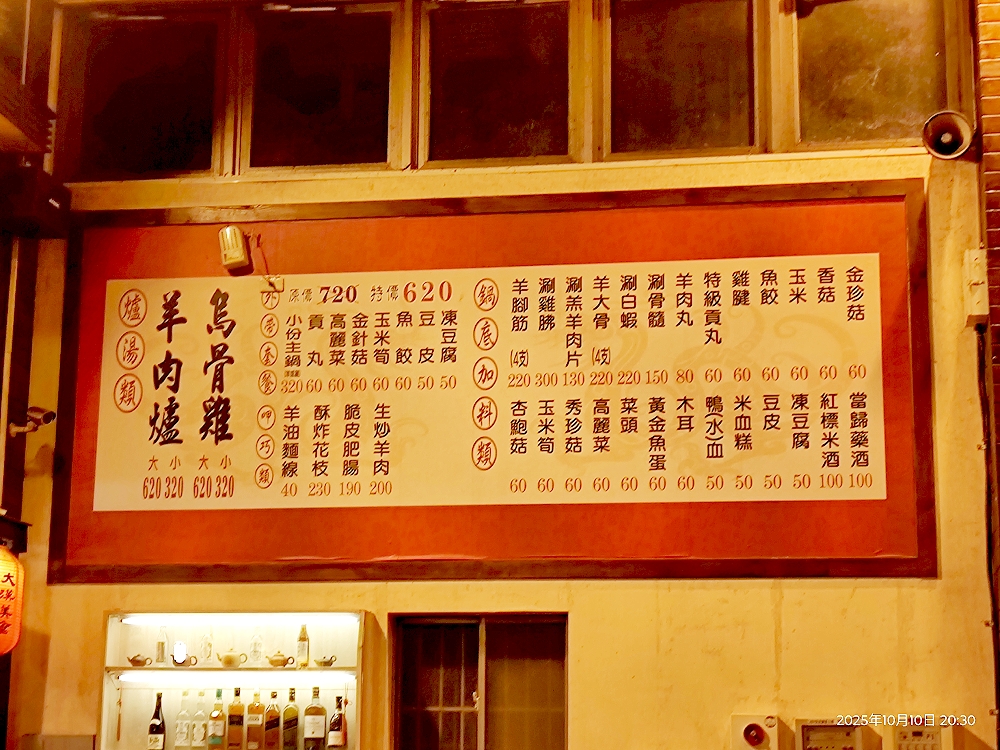 爐湯類
羊肉爐
大 小
620 320
烏骨雞
大 小
620 320
外帶套餐
原價720 特價620
小份主鍋 320
貢丸 60
高麗菜 60
金針菇 60
玉米筍 60
魚餃 60
豆皮 50
凍豆腐 50
呷巧類
羊油麵線 40
酥炸花枝 230
脆皮肥腸 190
生炒羊肉 200
鍋底加料類
羊腳筋(4支) 220
涮雞胇 300
涮羔羊肉片 130
羊大骨(4支) 220
涮白蝦 220
涮骨髓 150
羊肉丸 80
特級貢丸 60
雞腱 60
魚餃 60
玉米 60
香菇 60
金珍菇 60
杏鮑菇 60
玉米筍 60
秀珍菇 60
高麗菜 60
菜頭 60
黃金魚蛋 60
木耳 60
鴨(水)血 50
米血糕 50
豆皮 50
凍豆腐 50
紅標米酒 100
當歸藥酒 100
2025年10月10日 20:30